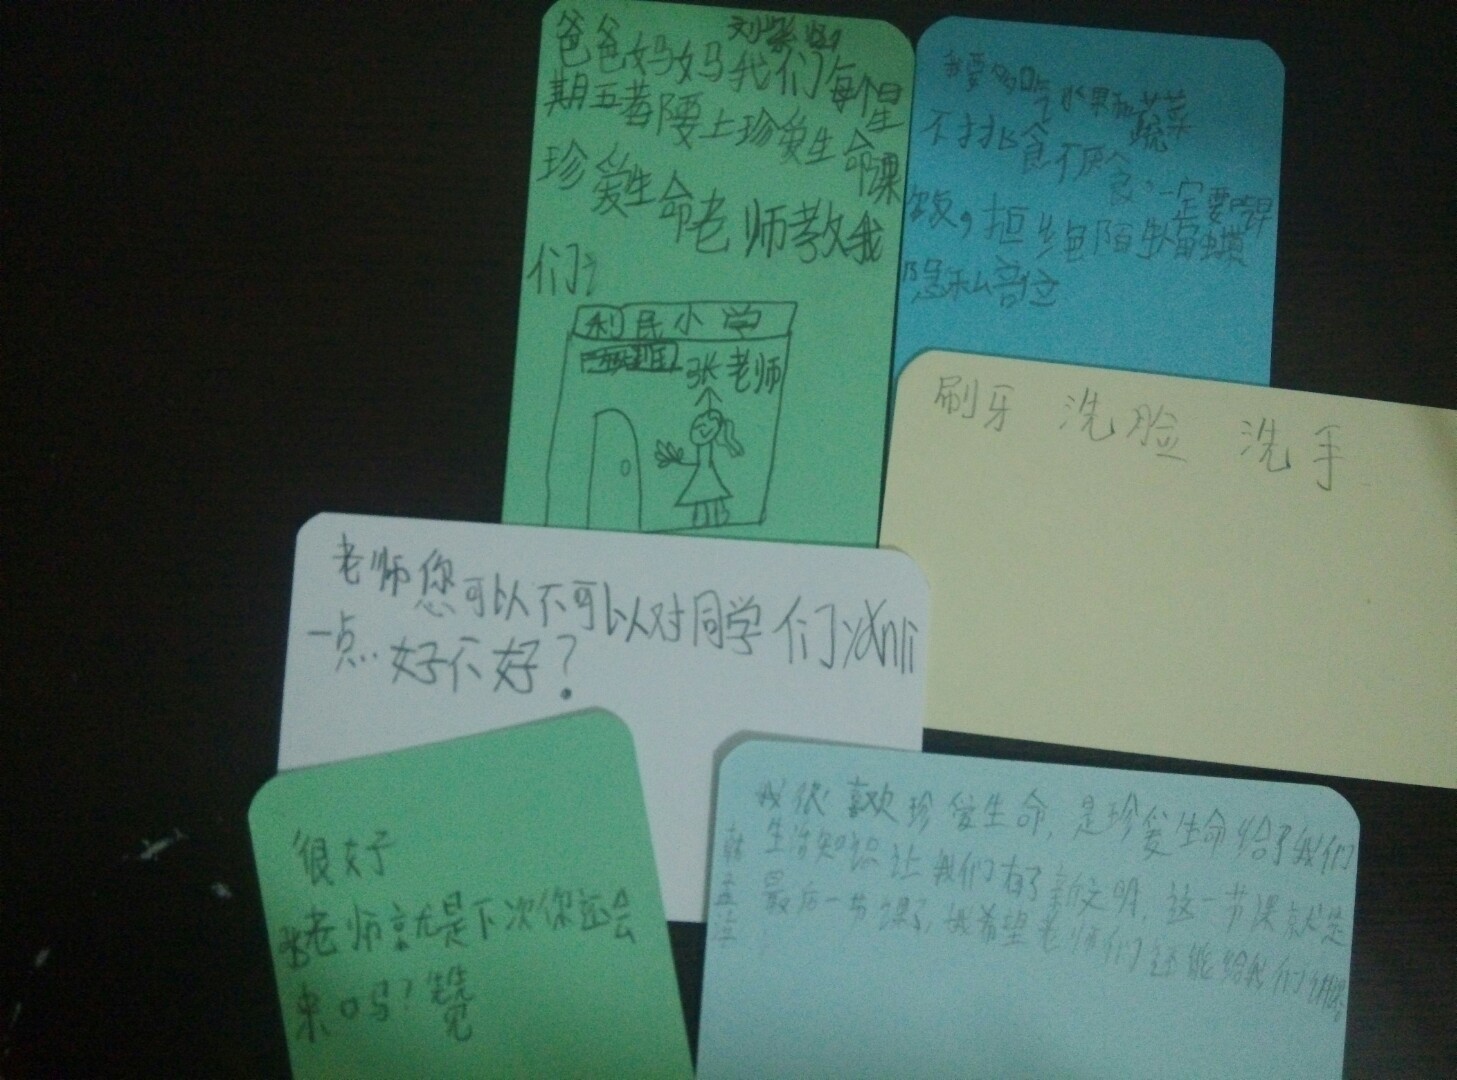 爸爸妈妈我们每个星
期五都要上珍爱生命课
珍爱生命老师教我
们
利民小学
张老师
我要多吃水果和蔬菜
不扌兆食不厌食,一定要吃早
饭,拒绝陌生人
隐私部位
刷牙 洗脸 洗手
老师您可以不可以对同学们yánli
一点.好不好?
很好
张老师就是下次你还会
来吗?赞
我很喜欢珍爱生命,是珍爱生命给了我们
生活知识让我们有了新文明,这一节课就是
最后一节课了,我希望老师们还能给我们